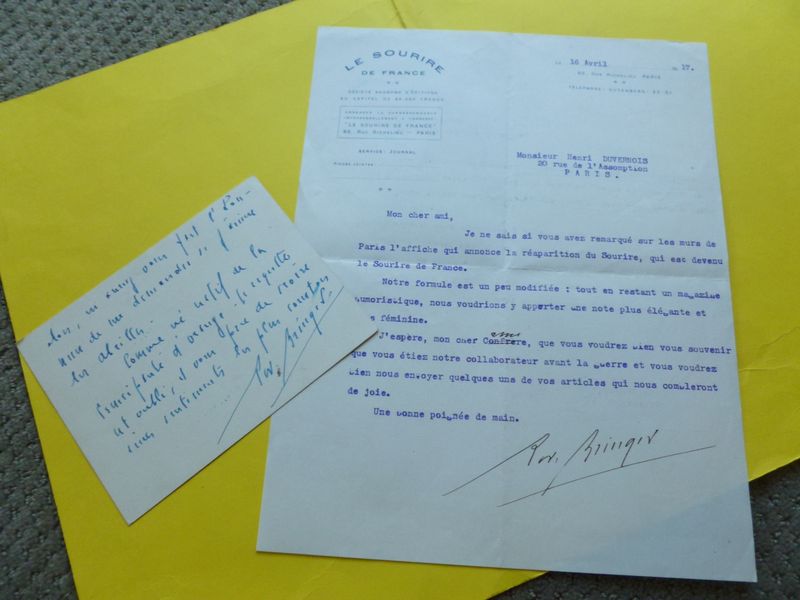 LE SOURIRE
DE FRANCE
SOCIÉTÉ ANONYME D'ÉDITIONS
AU CAPITAL DE FRANCS
ADRESSER LA CORRESPONDANCE
IMPERSONNELLEMENT À L'ADRESSE
"LE SOURIRE DE FRANCE"
RUE RICHELIEU — PARIS
SERVICE: JOURNAL
PIÈCES JOINTES
16 Avril 17.
RUE RICHELIEU PARIS
TÉLÉPHONE: GUTENBERG
Monsieur Henri DUVERNOIS
20 rue de l'Assomption
PARIS.
Mon cher ami,
Je ne sais si vous avez remarqué sur les murs de
Paris l'affiche qui annonce la réaparition du Sourire, qui est devenu
le Sourire de France.
Notre formule est un peu modifiée : tout en restant un magazine
humoristique, nous voudrions y apporter une note plus élégante et
féminine.
J'espère, mon cher Confrère, que vous voudrez bien vous souvenir
que vous étiez notre collaborateur avant la guerre et vous voudrez
bien nous envoyer quelques uns de vos articles qui nous combleront
de joie.
Une bonne poignée de main.
Rod. Bringer
vous font l'hon-
neur de me demander si j'aime
les abeilles.
Comme né natif de la
Principauté d'orange
et vous prie de croire
mes sentiments les plus
Rod. Bringer